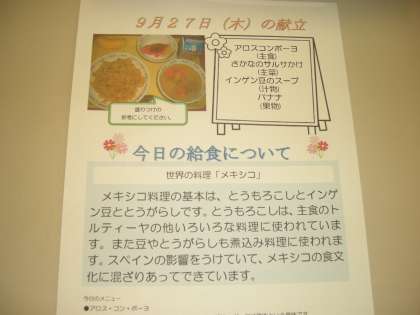 9月27日（木）の献立
アロスコンポーヨ
（主食）
さかなのサルサかけ
（主菜）
インゲン豆のスープ
（汁物）
バナナ
（果物）
盛りつけの
参考にしてください。
今日の給食について
世界の料理「メキシコ」
メキシコ料理の基本は、とうもろこしとインゲ
ン豆ととうがらしです。とうもろこしは、主食のト
ルティーヤの他いろいろな料理に使われていま
す。また豆やとうがらしも煮込み料理に使われま
す。スペインの影響をうけていて、メキシコの食文
化に混ざりあってできています。
今日のメニュー
●アロス・コン・ポーヨ